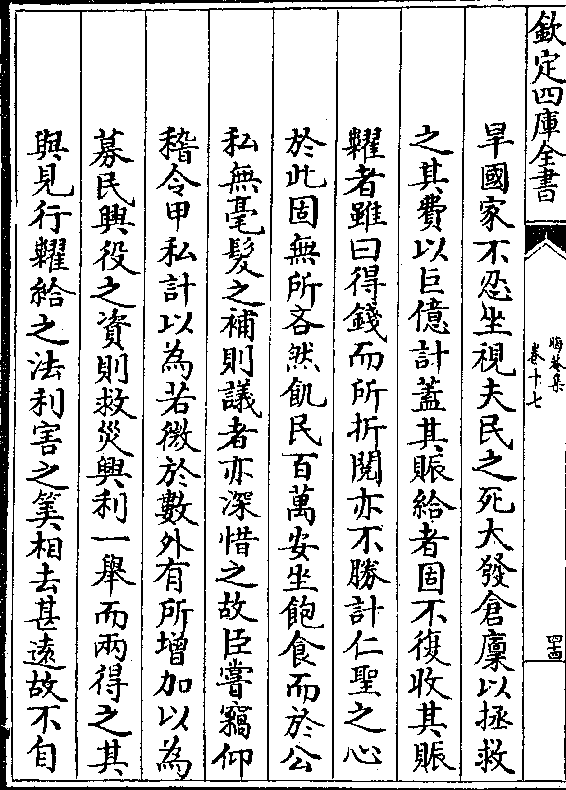 欽定四庫全書
晦菴集
卷十七
四十四
旱國家不忍坐視夫民之死大發倉廩以拯救
之其費以巨億計蓋其賑給者固不復收其賑
糶者雖曰得錢而所折閱亦不勝計仁聖之心
於此固無所吝然飢民百萬安坐飽食而於公
私無毫髮之補則議者亦深惜之故臣嘗竊仰
稽令甲私計以為若微於數外有所增加以為
募民興役之資則救災興利一舉而兩得之其
與見行糶給之法利害之筭相去甚遠故不自